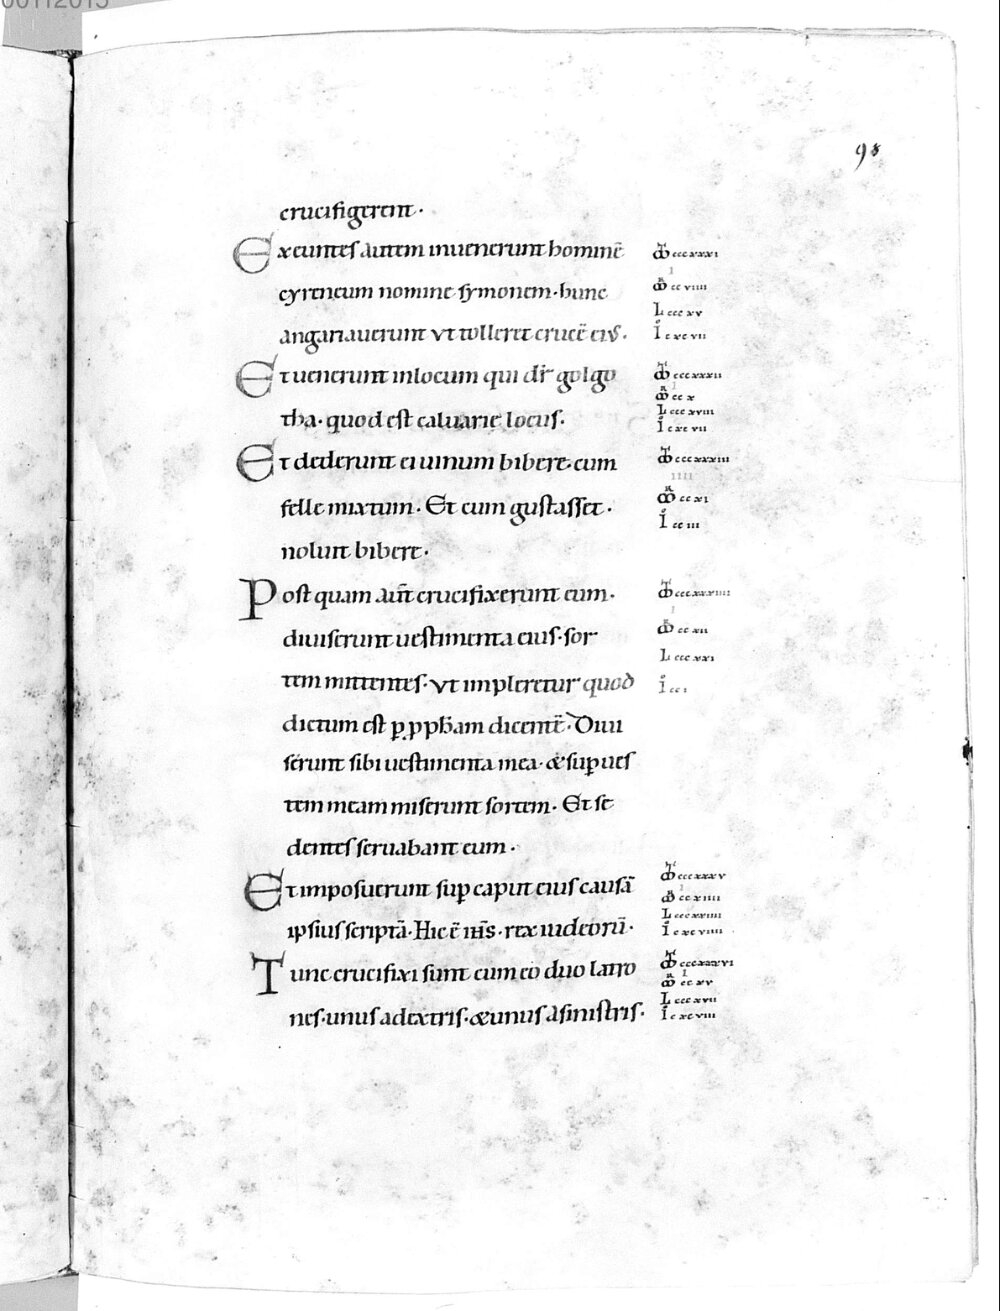 00112015
98
crucifigerent·
Exeuntes autem inuenerunt hominē
cyreneum nomine symonem· hunc
angariauerunt vt tolleret crucē eius·
Et uenerunt inlocum qui dr̄ golgo
tha· quod est caluarie locus·
Et dederunt ei uinum bibere· cum
felle mixtum· Et cum gustasset·
noluit bibere·
Post quam aut̄ crucifixerunt eum·
diuiserunt uestimenta eius· sor
tem mittentes· vt impleretur quod
dictum est ꝑ ꝓph̄am dicentē· Diui
serunt sibi uestimenta mea· & suꝑ ues
tem meam miserunt sortem· Et se
dentes seruabant eum·
Et imposuerunt suꝑ caput eius causā
ipsius scriptā· Hic ē ih̄s· rex iudeorū·
Tunc crucifixi sunt cum eo duo latro
nes· unus adextris· & unus asinistris·
cccxxxi
i
cc viiii
L ccc xv
I c xc vii
cccxxxii
i
cc x
L ccc xviii
I c xc vii
cccxxxiii
iiii
cc xi
I cc iii
cccxxxiiii
i
cc xii
L ccc xxi
I cc i
cccxxxv
i
cc xiiii
L cccxxiiii
I c xc viiii
cccxxxvi
i
cc xv
L ccc xvii
I c xc viii